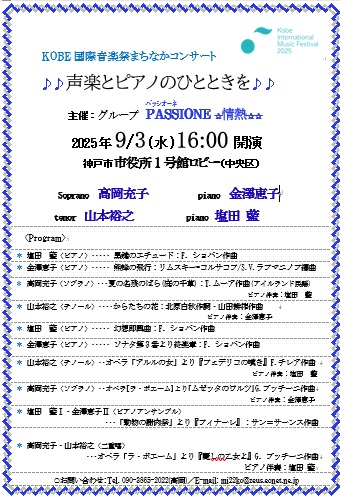 Kobe
International
Music Festival
2025
KOBE国際音楽祭まちなかコンサート
♪♪声楽とピアノのひとときを♪♪
パッシオーネ
主催：グループ PASSIONE ☆情熱☆☆
2025年 9/3(水) 16:00 開演
神戸市市役所１号館ロビー(中央区)
Soprano 高岡充子 piano 金澤恵子
tenor 山本裕之 piano 塩田 藍
〈Program〉
＊ 塩田 藍〈ピアノ〉･････ 黒鍵のエチュード：F. ショパン作曲
＊ 金澤恵子〈ピアノ〉････ 熊蜂の飛行：リムスキー=コルサコフ/S.V.ラフマニノフ編曲
＊ 高岡充子〈ソプラノ〉･･･夏の名残のばら(庭の千草)：T.ムーア作曲(アイルランド民謡)
ピアノ伴奏：塩田 藍
＊ 山本裕之〈テノール〉････からたちの花：北原白秋作詞・山田耕筰作曲
ピアノ伴奏：金澤恵子
＊ 塩田 藍〈ピアノ〉････ 幻想即興曲：F. ショパン作曲
＊ 金澤恵子〈ピアノ〉････ ソナタ第３番より終楽章：F. ショパン作曲
＊ 山本裕之〈テノール〉･･オペラ「アルルの女」より『フェデリコの嘆き』F.チレア作曲
ピアノ伴奏：塩田 藍
＊ 高岡充子〈ソプラノ〉･･オペラ「ラ・ボエーム」より『ムゼッタのワルツ』G.プッチーニ作曲
ピアノ伴奏：金澤恵子
＊ 塩田 藍Ⅰ・金澤恵子Ⅱ〈ピアノアンサンブル〉
････「動物の謝肉祭」より『フィナーレ』：サン=サーンス作曲
＊ 高岡充子・山本裕之〈二重唱〉
････オペラ「ラ・ボエーム」より『麗しの乙女よ』G. プッチーニ作曲
ピアノ伴奏：塩田 藍
◎お問い合わせ：Tel. 090-3865-2022(高岡)／E-mail: